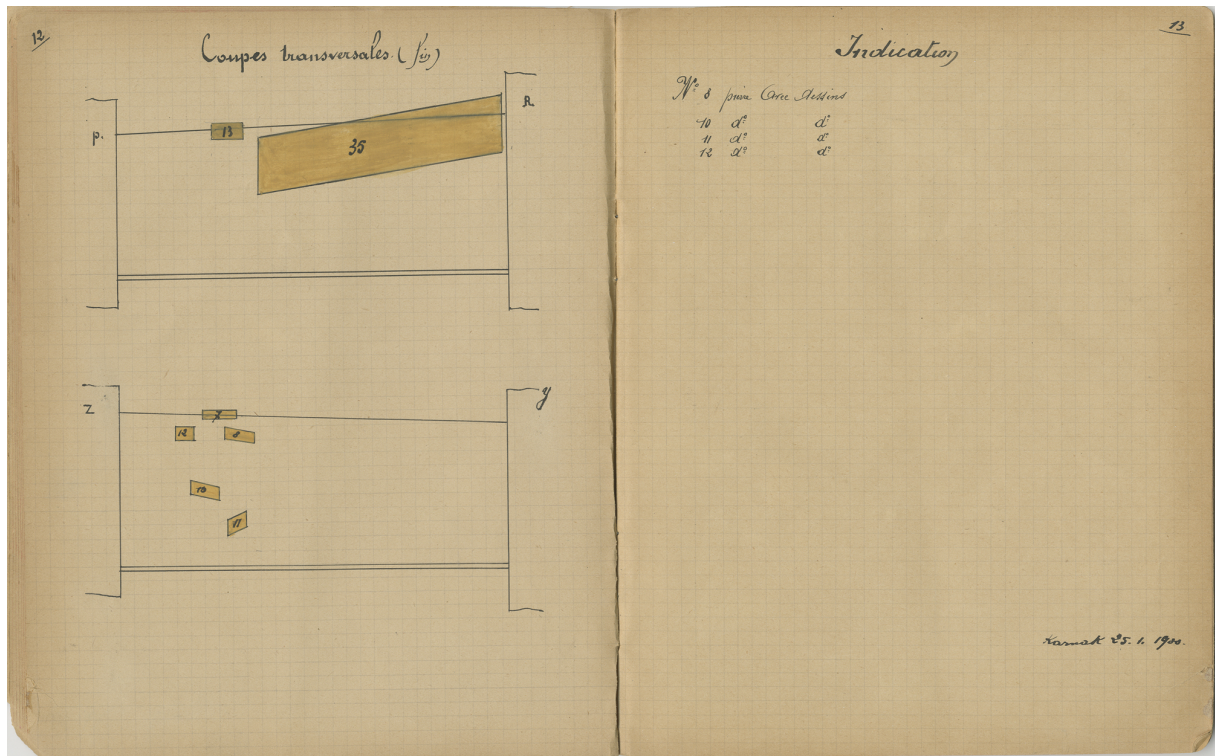 12
Coupes transversales (fin)
P.
13
35
R
Z
7
12
8
10
11
y
13
Indication
Nº 8 pierre avec dessins
10 dº dº
11 dº dº
12 dº dº
Karnak 25.1.19